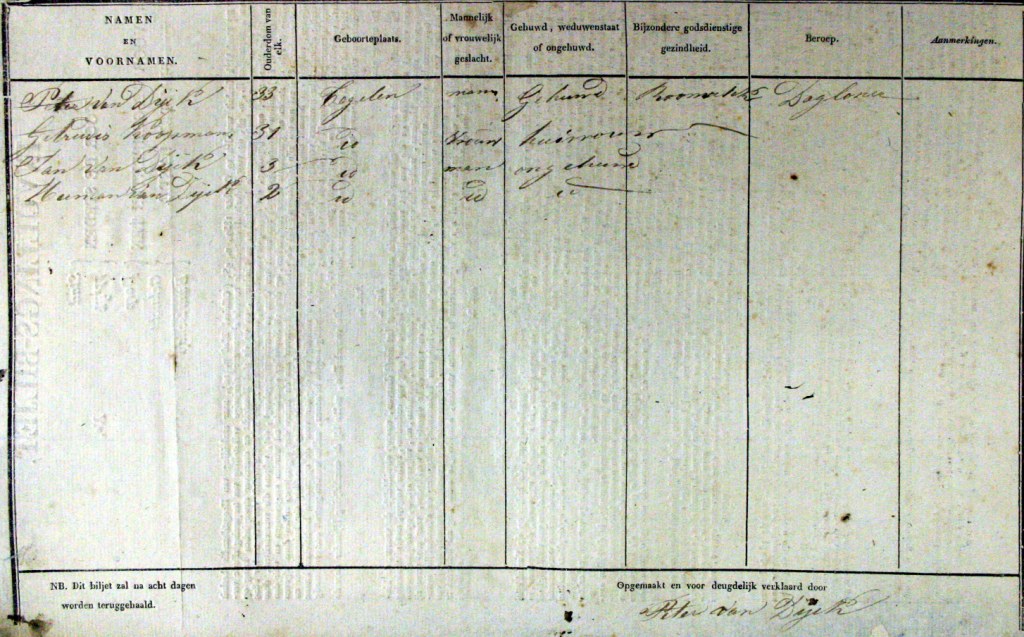 NAMEN EN VOORNAMEN. Ouderdom van elk. Geboorteplaats. Mannelijk of vrouwelijk geslacht. Gehuwd, weduwenstaat of ongehuwd. Bijzondere godsdienstige gezindheid. Beroep. Aanmerkingen.
Peter van Dijck 33 Tegelen man Gehuwd
31 id vrouw
Jan van Dijck 3 id man ongehuwd
Herman van Dijck 2 id id id
NB. Dit biljet zal na acht dagen worden teruggehaald.
Opgemaakt en voor deugdelijk verklaard door
Peter van Dijck